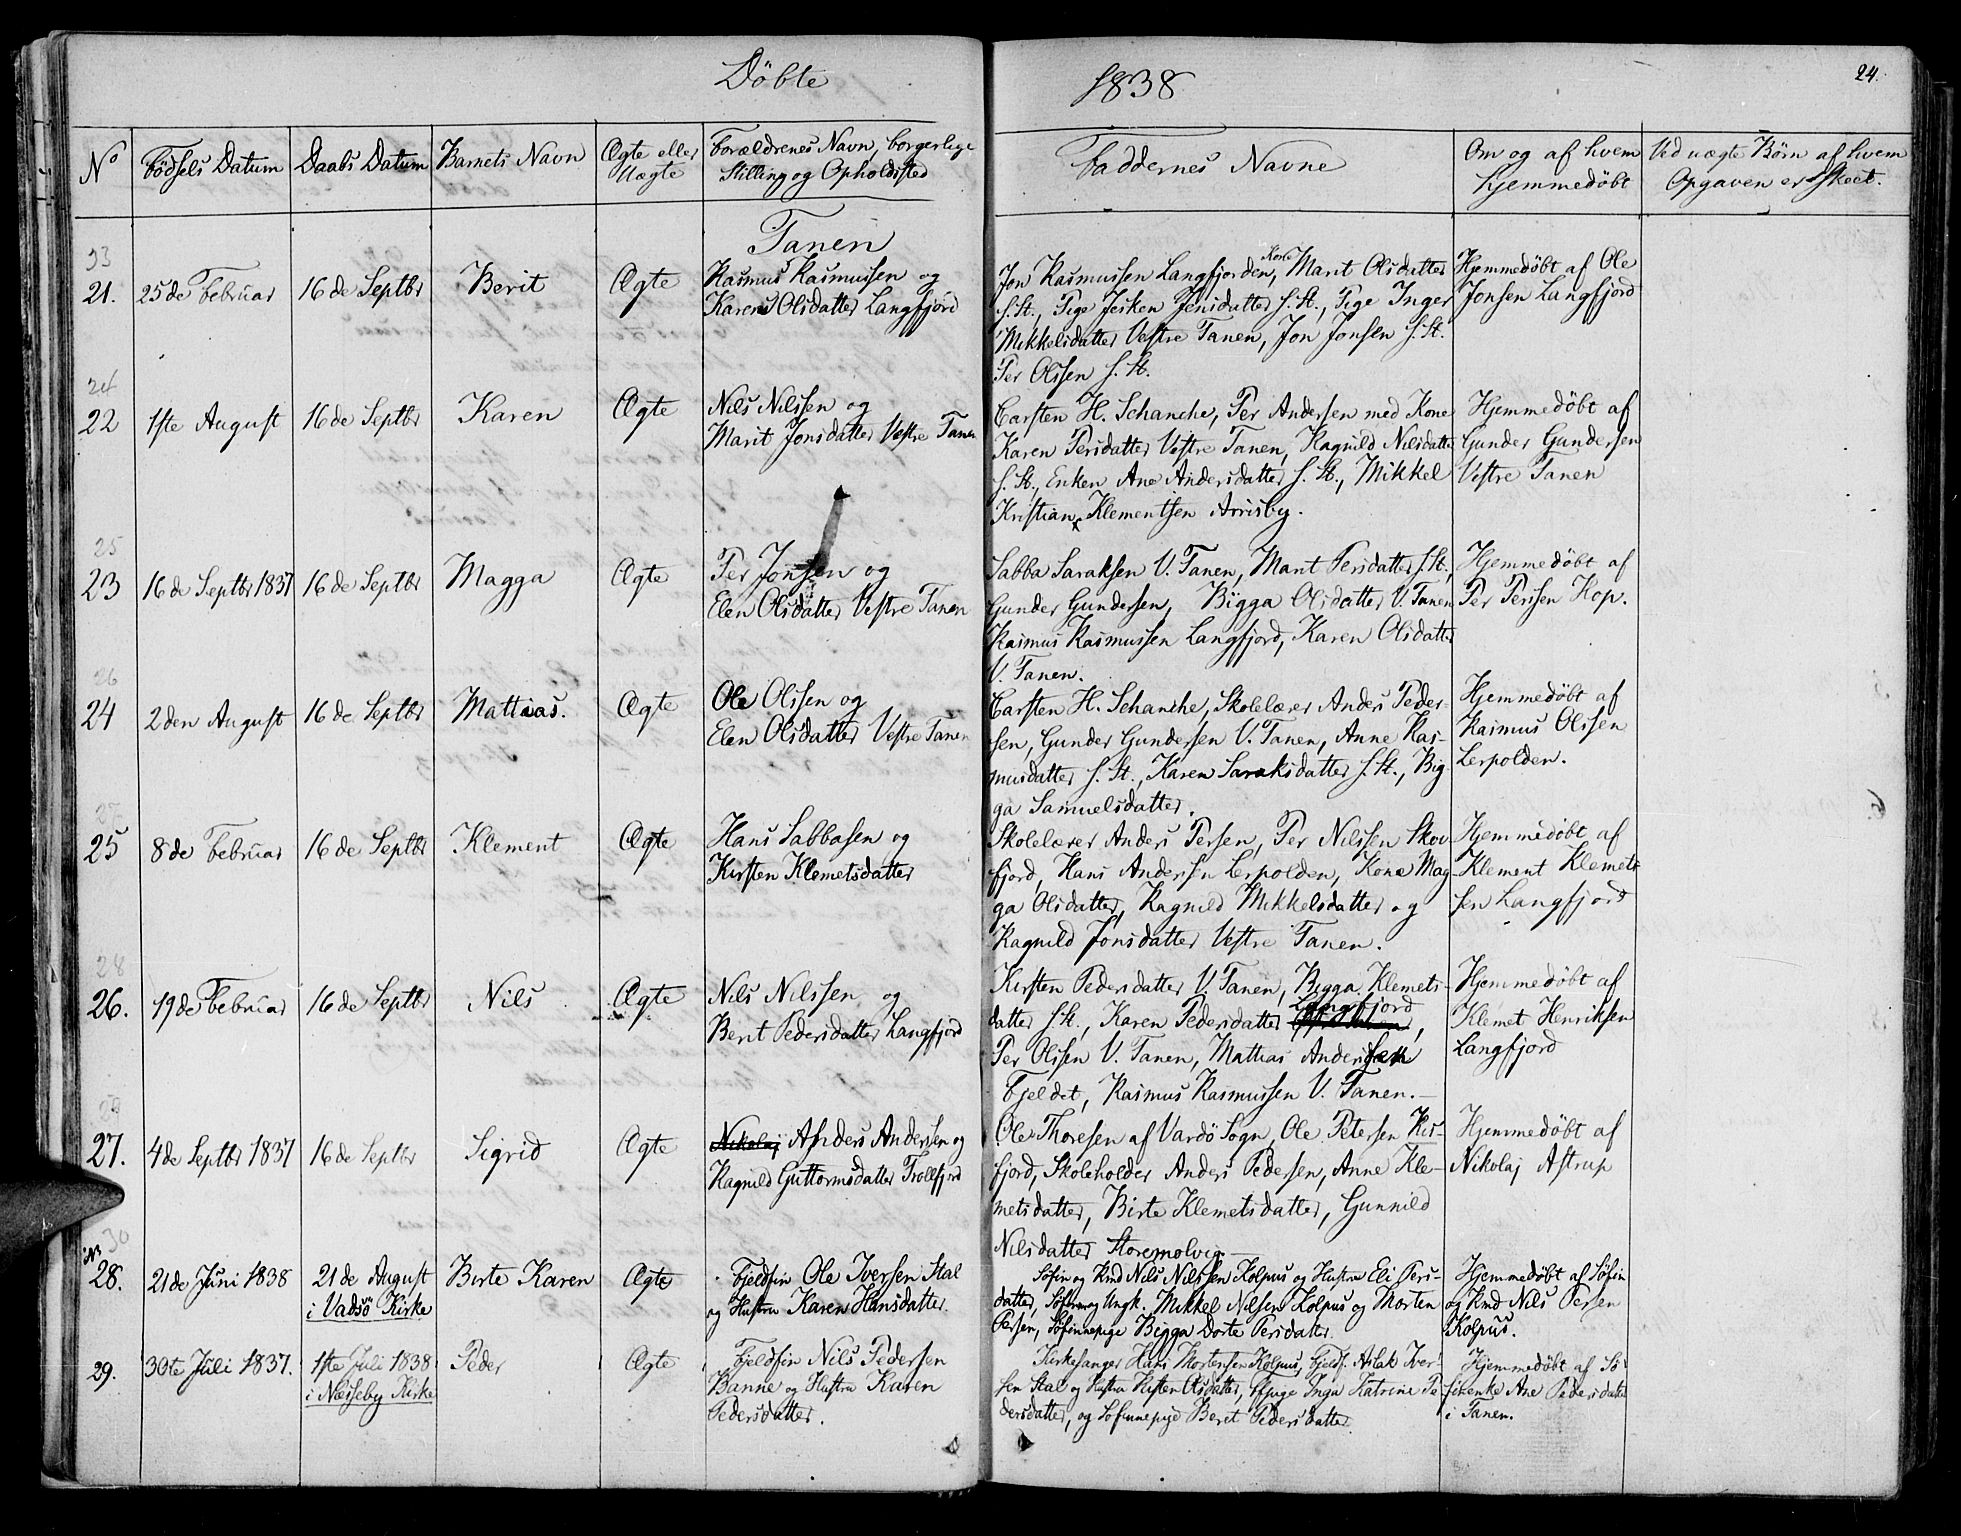 Döbte
1838
24.
No
Födsels Datum
Daabs Datum
Barnets Navn
Ægte eller
Uægte
Forældrenes Navn, borgerlige
Stilling og Opholdsted
Faddernes Navne
Om og af hvem
hjemmedöbt
Ved uægte Börn af hvem
Opgaven er skeet.
Tanen
23
21.
25de Februar
16de Septbr
Berit
Ægte
Rasmus Rasmussen og
Karen Olsdatter Langfjord
Jon Rasmussen Langfjorden, Kone Marit Olsdatter
s. St., Pige Jesken Jensdatter s. St., Pige Inger
Mikkelsdatter Vestre Tanen, Jon Jonsen s. St.
Per Olssen s. St.
Hjemmedöbt af Ole
Jonsen Langfjord
24
22
1ste August
16de Septbr
Karen
Ægte
Nils Nilssen og
Marit Jonsdatter Vestre Tanen
Carsten H. Schanche, Per Andersen med Kone
Karen Persdatter Vestre Tanen, Ragnild Nilsdatter
s. St., Enken Ane Andersdatter s. St., Mikkel
Kristian Klementsen Arrisby.
Hjemmedöbt af
Gunder Gundersen
Vestre Tanen
25
23
16de Septbr 1837
16de Septbr
Magga
Ægte
Per Jonsen og
Elen Olsdatter Vestre Tanen
Sabba Saraksen V. Tanen, Marit Persdatter s. St.,
Gunder Gundersen, Bigga Olsdatter V. Tanen
Rasmus Rasmussen Langfjord, Karen Olsdatter
V. Tanen.
Hjemmedöbt af
Per Persen Hop.
26
24
2den August
16de Septbr
Mattias.
Ægte
Ole Olssen og
Elen Olsdatter Vestre Tanen
Carsten H. Schanche, Skolelærer Anders Peder-
sen, Gunder Gundersen V. Tanen, Anne Ras-
musdatter s. St., Karen Saraksdatter s. St., Big-
ga Samuelsdatter.
Hjemmedöbt af
Rasmus Olssen
Lerpolden.
27
25
8de Februar
16de Septbr
Klement
Ægte
Hans Sabbasen og
Kirsten Klemetsdatter
Skolelærer Anders Persen, Per Nilssen Skov-
fjord, Hans Andersen Lerpolden, Kone Mag-
ga Olsdatter, Ragnild Mikkelsdatter og
Ragnild Jonsdatter Vestre Tanen.
Hjemmedöbt af
Klement Klemet-
sen Langfjord
28
26.
19de Februar
16de Septbr
Nils
Ægte
Nils Nilssen og
Berit Pedersdatter Langfjord
Kirsten Pedersdatter V. Tanen, Bigga Klemets-
datter s. St., Karen Pedersdatter Langfjord,
Per Olssen V. Tanen, Mattias Andersen
Fjeldet, Rasmus Rasmussen V. Tanen.
Hjemmedöbt af
Klemet Henriksen
Langfjord
29
27.
4de Septbr 1837
16de Septbr
Sigrid
Ægte
Nikolaj Anders Andersen og
Ragnild Guttormsdatter Trollfjord
Ole Thoresen af Vardö Sogn, Ole Petersen
fjord, Skoleholder Anders Pedersen, Anne Kle-
metsdatter, Birte Klemetsdatter, Gunnild
Nilsdatter Storemolvig.
Hjemmedöbt af
Nikolaj Astrup
30
28.
21de Juni 1838
21de August
i Vadsö Kirke
Birte Karen
Ægte
Fjeldfin Ole Iversen Stal
og Hustru Karen Hansdatter.
Söfin og Kmd Nils Nilssen Kolpus og Hustru Eli Pers-
datter, Ungk. Mikkel Nilsen Kolpus og Morten
Persen, Söfinnepige Bigga Dorte Persdatter.
Hjemmedöbt af Söfin
og Kmd Nils Persen
Kolpus.
29.
30te Juli 1837.
1ste Juli 1838
i Næsseby Kirke
Peder
Ægte
Fjeldfin Nils Pedersen
Banne og Hustru Karen
Pedersdatter.
Kirkesanger Hans Mortensen Kolpus, Fjeldf. Aslak Iver-
sen Stal og Hustru Kirsten Olsdatter, Inga Katrine Pe-
dersdatter, og Söfinnepige Beret Pedersdatter.
Hjemmedöbt af Sö-
finenke Ane Pedersdatter
i Tanen.